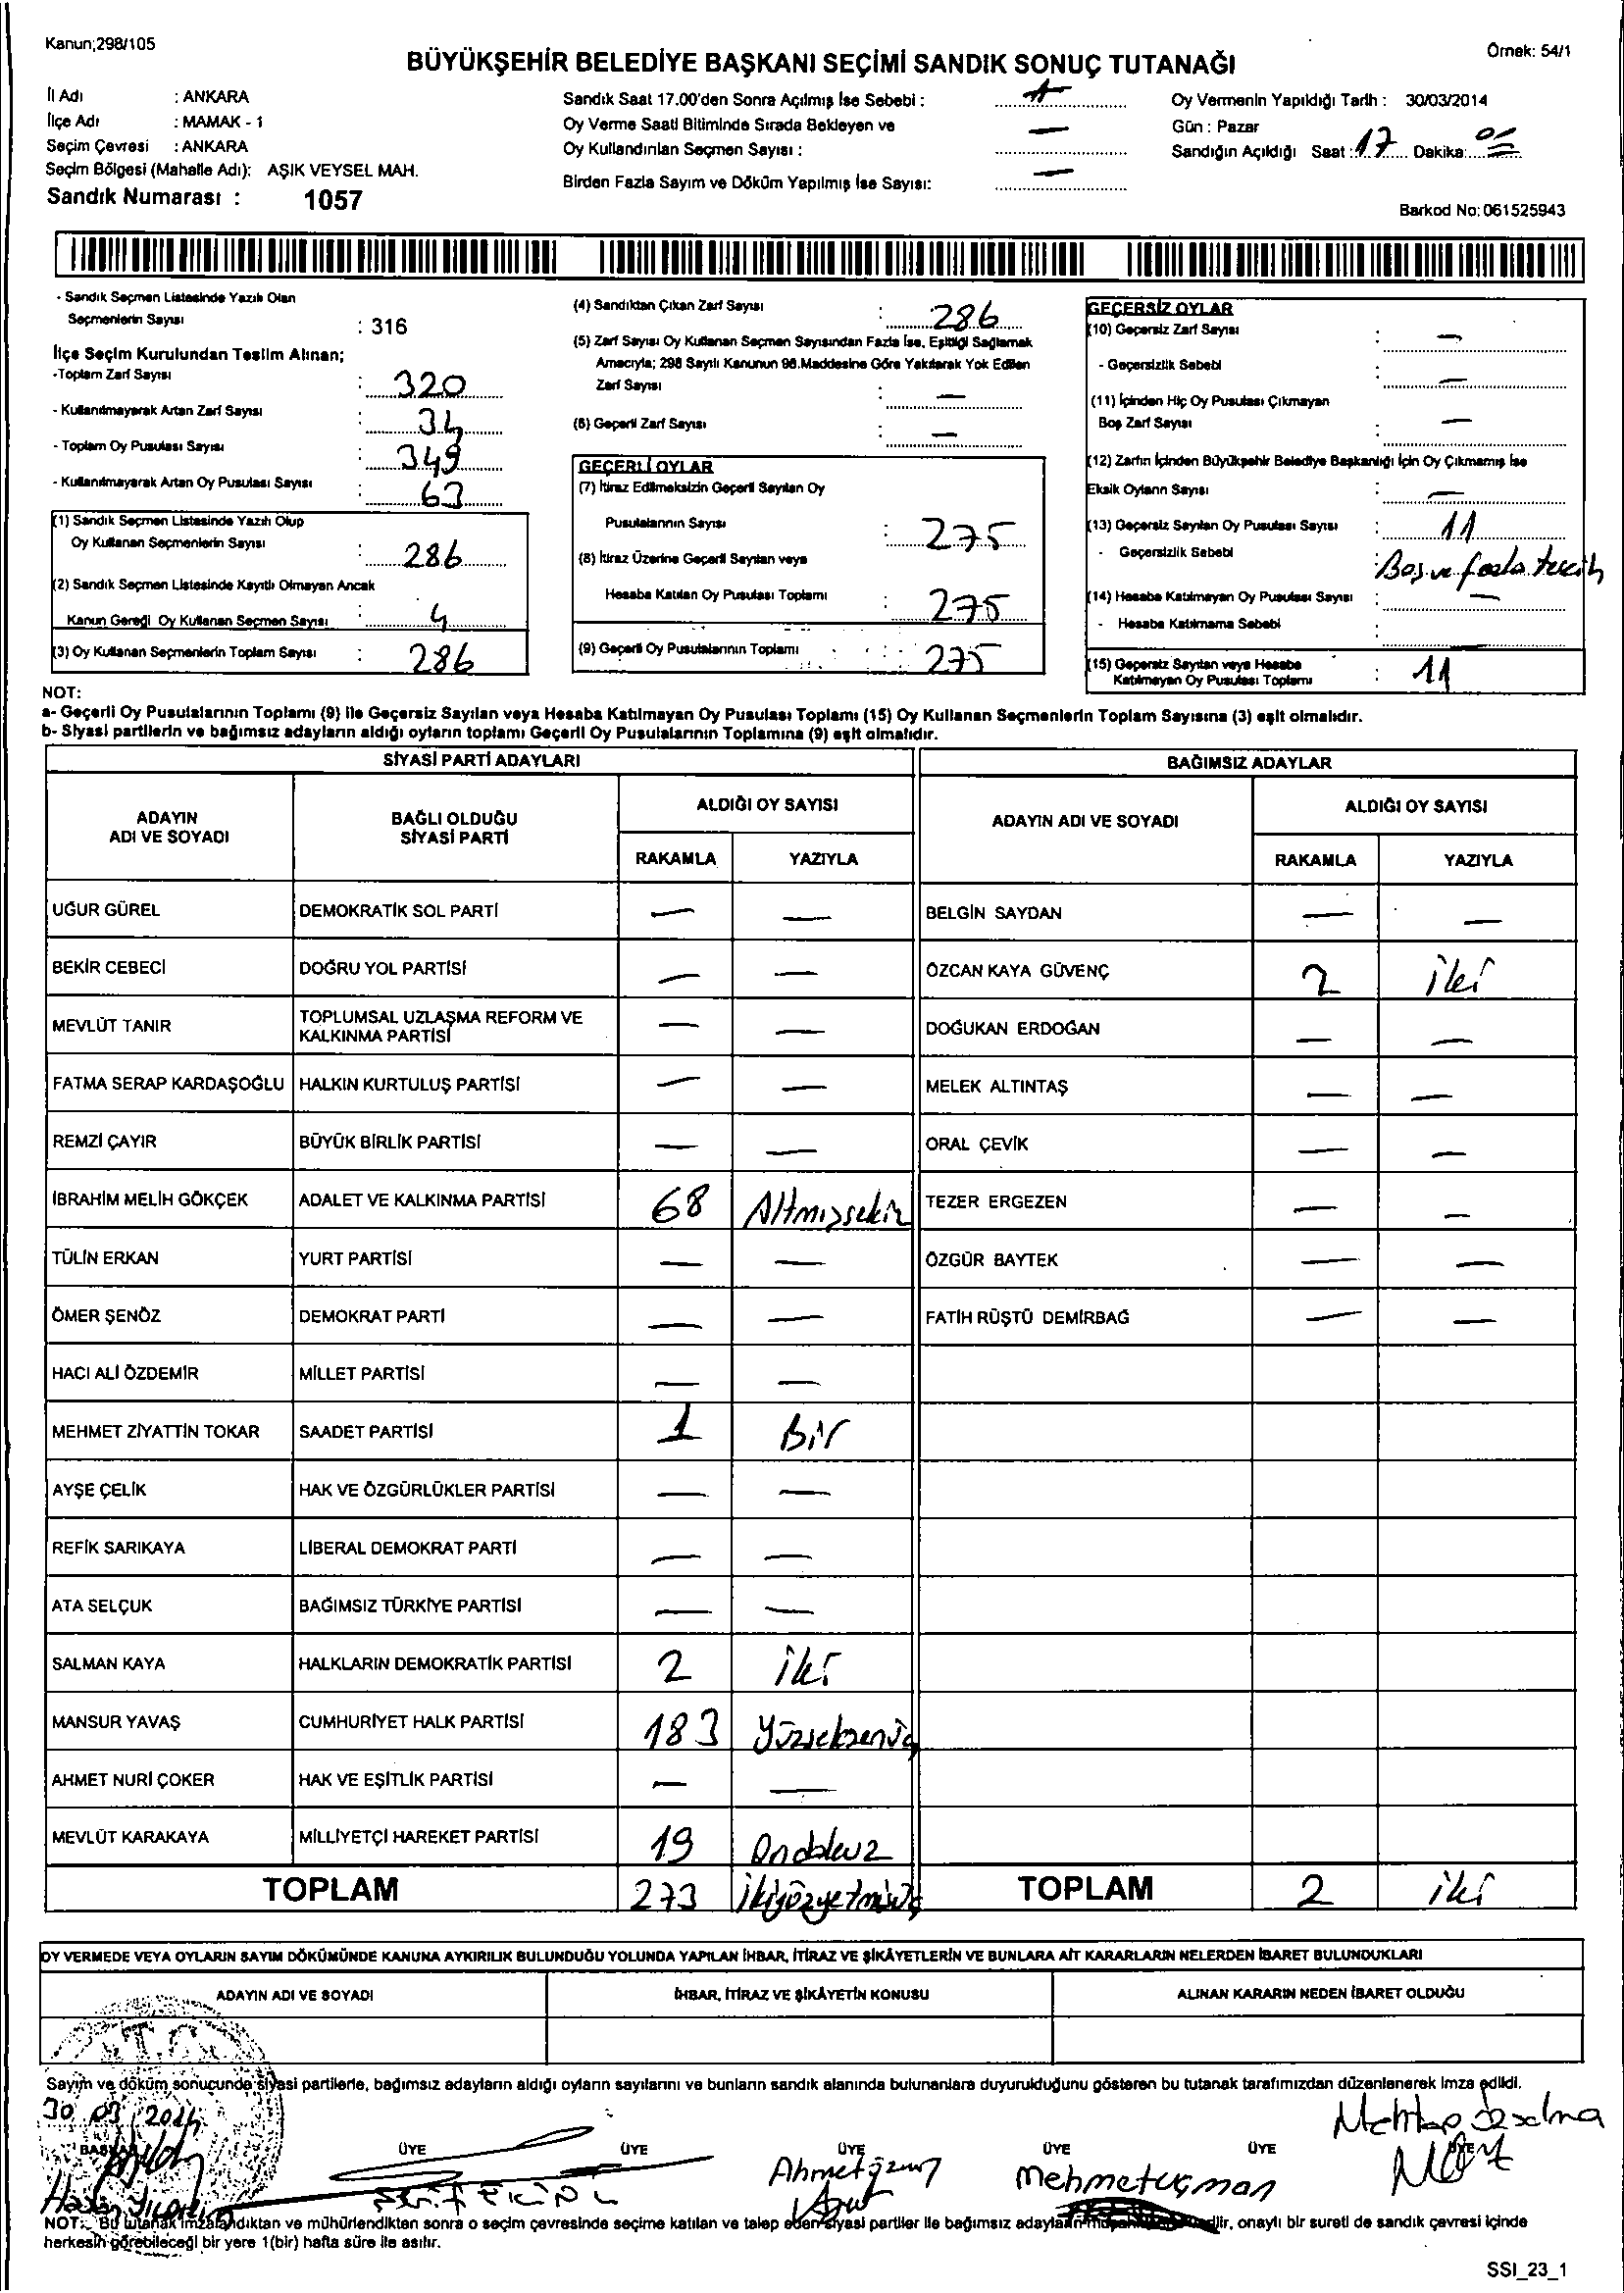 Kanun;298/105
Örnek: 54/1
BÜYÜKŞEHİR BELEDİYE BAŞKANI SEÇİMİ SANDIK SONUÇ TUTANAĞI
İl Adı : ANKARA
İlçe Adı : MAMAK - 1
Seçim Çevresi : ANKARA
Seçim Bölgesi (Mahalle Adı): AŞIK VEYSEL MAH.
Sandık Numarası : 1057
Sandık Saat 17.00'den Sonra Açılmış İse Sebebi :
Oy Verme Saati Bitiminde Sırada Bekleyen ve
Oy Kullandırılan Seçmen Sayısı : —
Birden Fazla Sayım ve Döküm Yapılmış İse Sayısı: —
Oy Vermenin Yapıldığı Tarih : 30/03/2014
Gün : Pazar
Sandığın Açıldığı Saat : 17 Dakika:
Barkod No: 061525943
- Sandık Seçmen Listesinde Yazılı Olan
Seçmenlerin Sayısı : 316
İlçe Seçim Kurulundan Teslim Alınan;
-Toplam Zarf Sayısı : 320
- Kullanılmayarak Artan Zarf Sayısı : 34
- Toplam Oy Pusulası Sayısı : 349
- Kullanılmayarak Artan Oy Pusulası Sayısı : 63
(1) Sandık Seçmen Listesinde Yazılı Olup
Oy Kullanan Seçmenlerin Sayısı : 286
(2) Sandık Seçmen Listesinde Kayıtlı Olmayan Ancak
Kanun Gereği Oy Kullanan Seçmen Sayısı : 4
(3) Oy Kullanan Seçmenlerin Toplam Sayısı : 286
(4) Sandıktan Çıkan Zarf Sayısı : 286
(5) Zarf Sayısı Oy Kullanan Seçmen Sayısından Fazla İse, Eşitliği Sağlamak
Amacıyla; 298 Sayılı Kanunun 98.Maddesine Göre Yakılarak Yok Edilen
Zarf Sayısı : —
(6) Geçerli Zarf Sayısı : —
GEÇERLİ OYLAR
(7) İtiraz Edilmeksizin Geçerli Sayılan Oy
Pusulalarının Sayısı : 275
(8) İtiraz Üzerine Geçerli Sayılan veya
Hesaba Katılan Oy Pusulası Toplamı : 275
(9) Geçerli Oy Pusulalarının Toplamı : 275
GEÇERSİZ OYLAR
(10) Geçersiz Zarf Sayısı : —
- Geçersizlik Sebebi : —
(11) İçinden Hiç Oy Pusulası Çıkmayan
Boş Zarf Sayısı : —
(12) Zarfın İçinden Büyükşehir Belediye Başkanlığı İçin Oy Çıkmamış İse
Eksik Oyların Sayısı : —
(13) Geçersiz Sayılan Oy Pusulası Sayısı : 11
- Geçersizlik Sebebi : Boş ve fazla tercih
(14) Hesaba Katılmayan Oy Pusulası Sayısı : —
- Hesaba Katılmama Sebebi :
(15) Geçersiz Sayılan veya Hesaba
Katılmayan Oy Pusulası Toplamı : 11
NOT:
a- Geçerli Oy Pusulalarının Toplamı (9) ile Geçersiz Sayılan veya Hesaba Katılmayan Oy Pusulası Toplamı (15) Oy Kullanan Seçmenlerin Toplam Sayısına (3) eşit olmalıdır.
b- Siyasi partilerin ve bağımsız adayların aldığı oyların toplamı Geçerli Oy Pusulalarının Toplamına (9) eşit olmalıdır.
SİYASİ PARTİ ADAYLARI
ADAYIN ADI VE SOYADI
BAĞLI OLDUĞU SİYASİ PARTİ
ALDIĞI OY SAYISI
RAKAMLA YAZIYLA
UĞUR GÜREL DEMOKRATİK SOL PARTİ — —
BEKİR CEBECİ DOĞRU YOL PARTİSİ — —
MEVLÜT TANIR TOPLUMSAL UZLAŞMA REFORM VE KALKINMA PARTİSİ — —
FATMA SERAP KARDAŞOĞLU HALKIN KURTULUŞ PARTİSİ — —
REMZİ ÇAYIR BÜYÜK BİRLİK PARTİSİ — —
İBRAHİM MELİH GÖKÇEK ADALET VE KALKINMA PARTİSİ 68 Altmışsekiz
TÜLİN ERKAN YURT PARTİSİ — —
ÖMER ŞENÖZ DEMOKRAT PARTİ — —
HACI ALİ ÖZDEMİR MİLLET PARTİSİ — —
MEHMET ZİYATTİN TOKAR SAADET PARTİSİ 1 Bir
AYŞE ÇELİK HAK VE ÖZGÜRLÜKLER PARTİSİ — —
REFİK SARIKAYA LİBERAL DEMOKRAT PARTİ — —
ATA SELÇUK BAĞIMSIZ TÜRKİYE PARTİSİ — —
SALMAN KAYA HALKLARIN DEMOKRATİK PARTİSİ 2 iki
MANSUR YAVAŞ CUMHURİYET HALK PARTİSİ 183 Yüzseksenüç
AHMET NURİ ÇOKER HAK VE EŞİTLİK PARTİSİ — —
MEVLÜT KARAKAYA MİLLİYETÇİ HAREKET PARTİSİ 19 Ondokuz
TOPLAM 273 ikiyüzyetmişüç
BAĞIMSIZ ADAYLAR
ADAYIN ADI VE SOYADI
ALDIĞI OY SAYISI
RAKAMLA YAZIYLA
BELGİN SAYDAN — —
ÖZCAN KAYA GÜVENÇ 2 iki
DOĞUKAN ERDOĞAN — —
MELEK ALTINTAŞ — —
ORAL ÇEVİK — —
TEZER ERGEZEN — —
ÖZGÜR BAYTEK — —
FATİH RÜŞTÜ DEMİRBAĞ — —
TOPLAM 2 iki
OY VERMEDE VEYA OYLARIN SAYIM DÖKÜMÜNDE KANUNA AYKIRILIK BULUNDUĞU YOLUNDA YAPILAN İHBAR, İTİRAZ VE ŞİKÂYETLERİN VE BUNLARA AİT KARARLARIN NELERDEN İBARET BULUNDUKLARI
ADAYIN ADI VE SOYADI
İHBAR, İTİRAZ VE ŞİKÂYETİN KONUSU
ALINAN KARARIN NEDEN İBARET OLDUĞU
Sayım ve döküm sonucunda siyasi partilerle, bağımsız adayların aldığı oyların sayılarını ve bunların sandık alanında bulunanlara duyurulduğunu gösteren bu tutanak tarafımızdan düzenlenerek imza edildi.
30 03 2014
BAŞKAN ÜYE ÜYE ÜYE ÜYE ÜYE ÜYE
Ahmet
Mehmet uçman
NOT: Bu tutanak imzalandıktan ve mühürlendikten sonra o seçim çevresinde seçime katılan ve talep eden siyasi partiler ile bağımsız adayların onaylı bir sureti de sandık çevresi içinde
herkesin görebileceği bir yere 1(bir) hafta süre ile asılır.
SSI_23_1